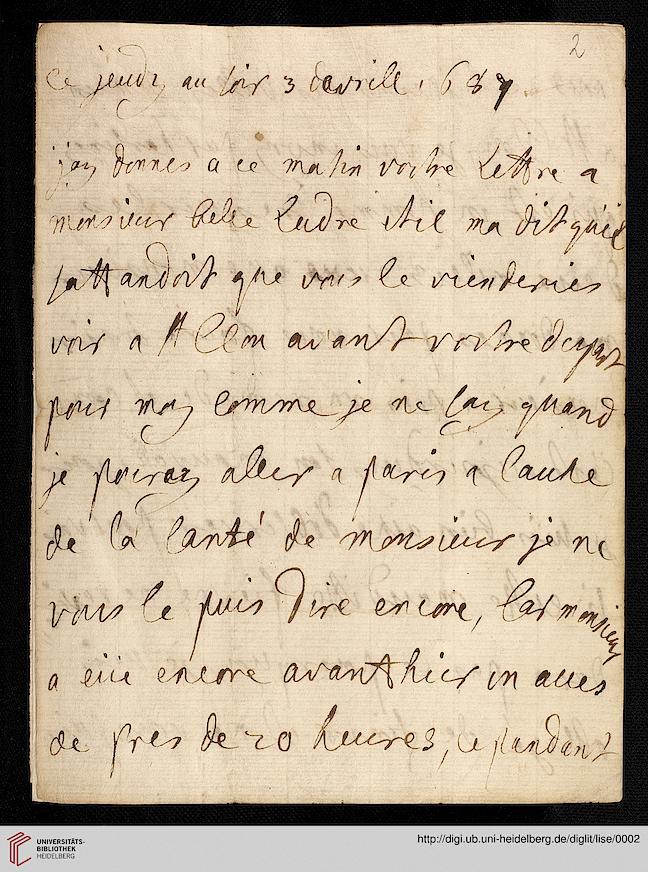 2
Ce jeudy au soir 3 davrille 1687
jay donnes a ce matin vostre Lettre a
monsieur belle Ludre est il ma dit qu'il
sattandoit que vous le vienderies
voir a St Clou avant vostre depart
pour moy comme je ne say quand
je pouray aller a paris a cause
de la santé de monsieur je ne
vous le puis dire encore, Car monsieur
a eüe encore avanthier un acces
de pres de 20 heures, ce pandant
UNIVERSITÄTS-
BIBLIOTHEK
HEIDELBERG
http://digi.ub.uni-heidelberg.de/diglit/lise/0002